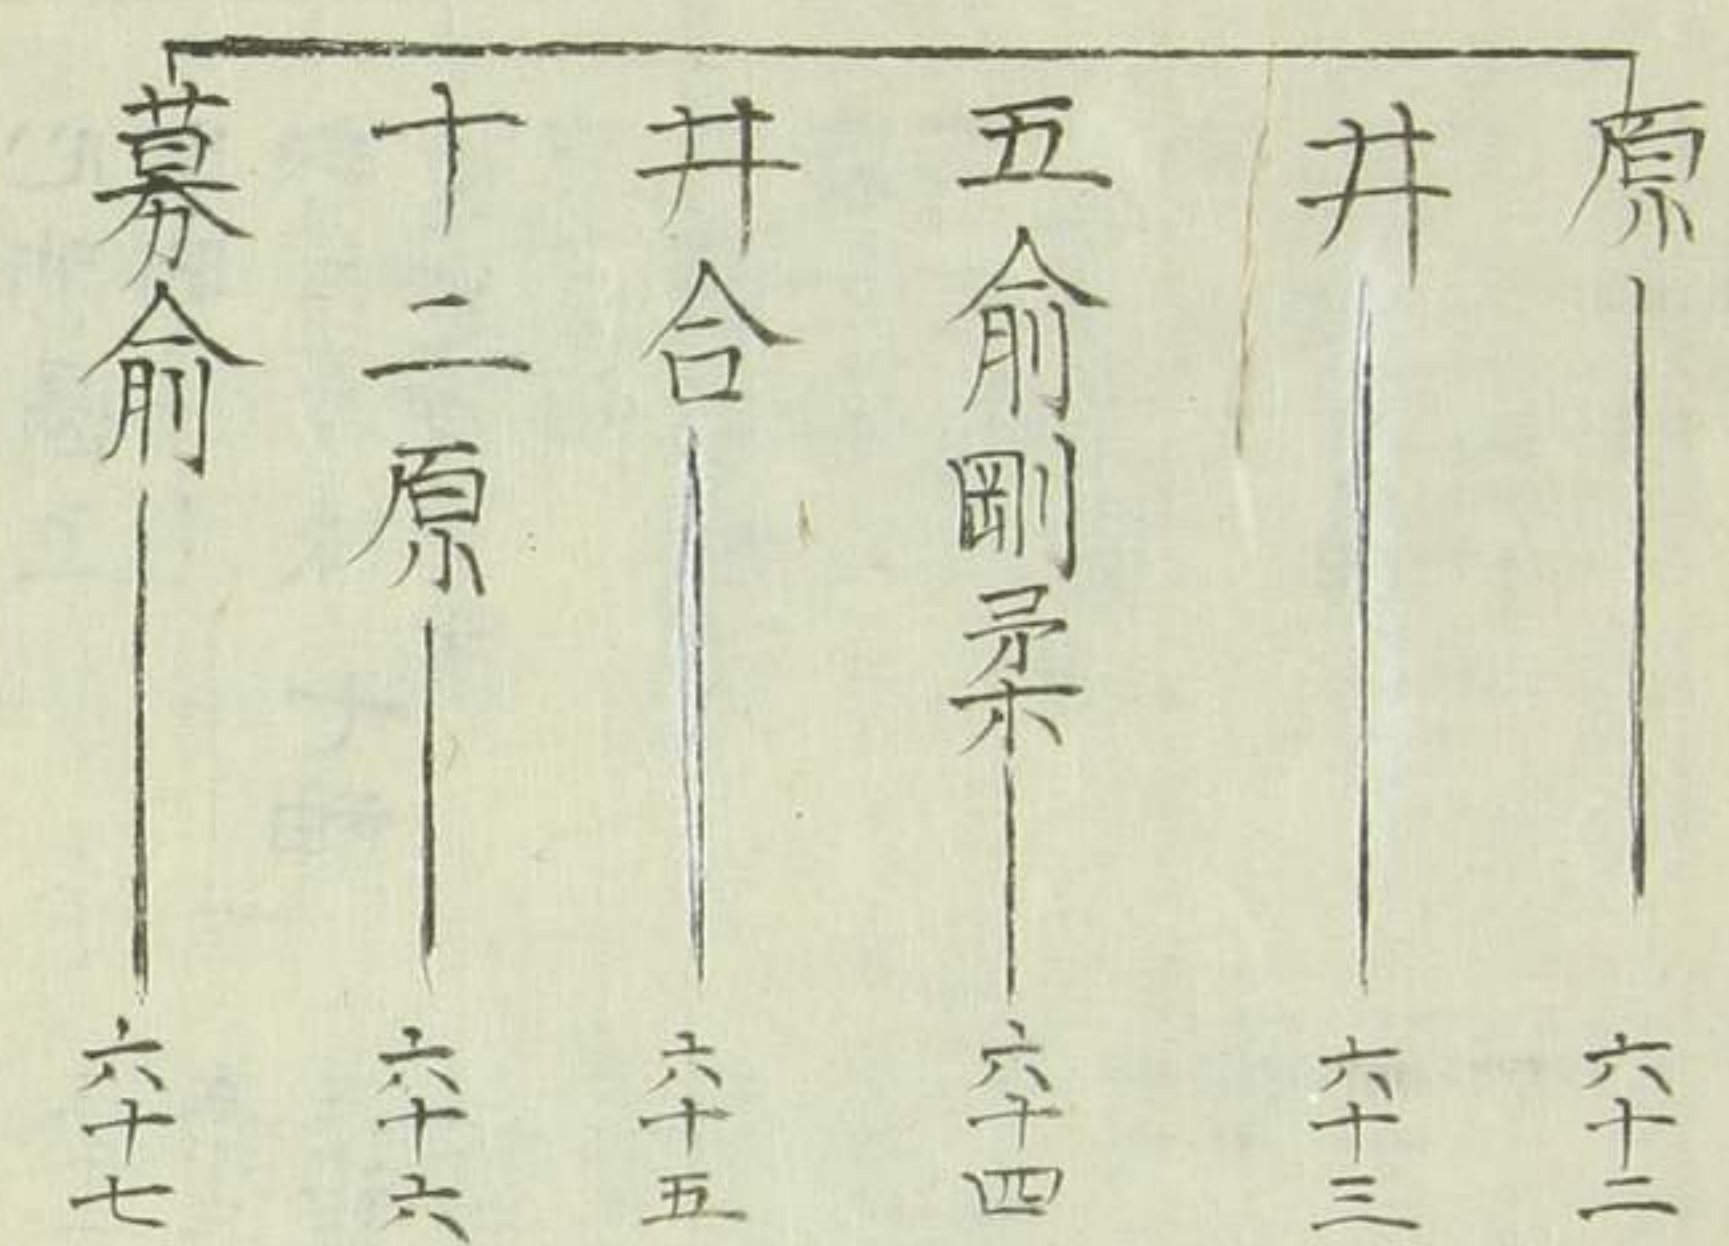 原 六十二
井 六十三
五俞剛柔 六十四
井合 六十五
十二原 六十六
募俞 六十七